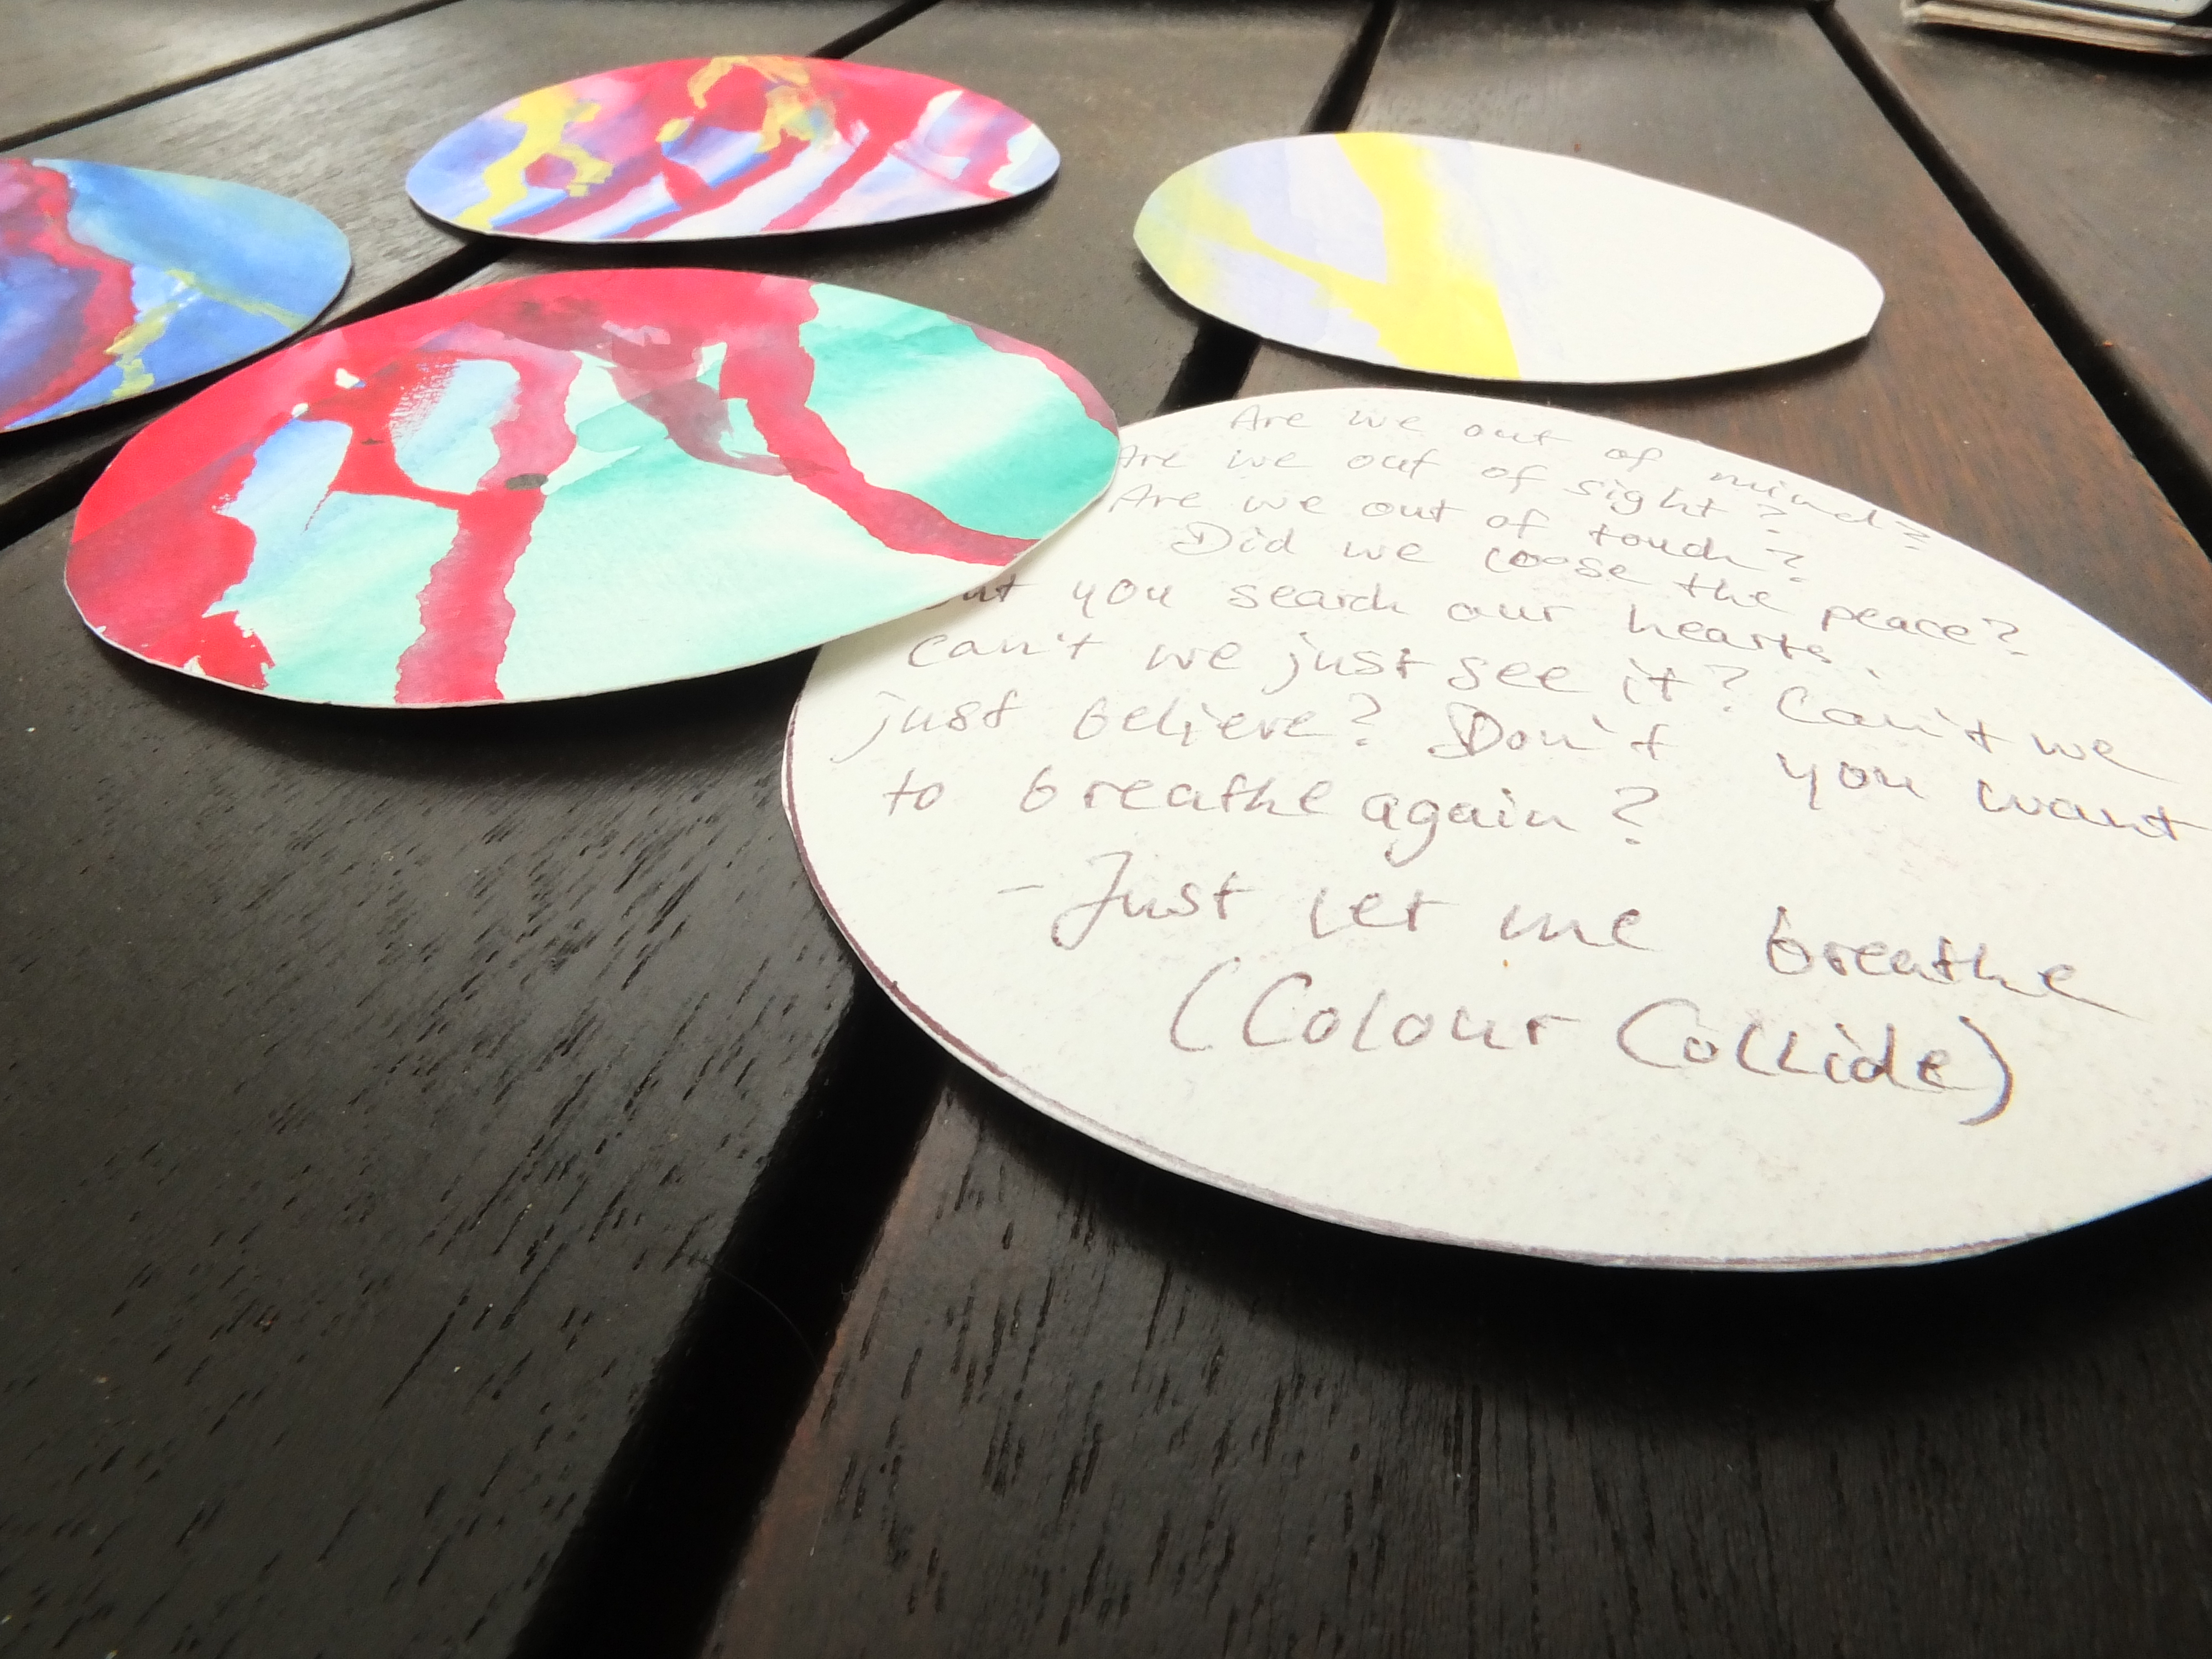 Are we out of mind?
Are we out of sight?
Are we out of touch?
Did we loose the peace?
you search our hearts.
Can't we just see it? Can't we
just believe? Don't you want
to breathe again?
- Just let me breathe
(Colour Collide)